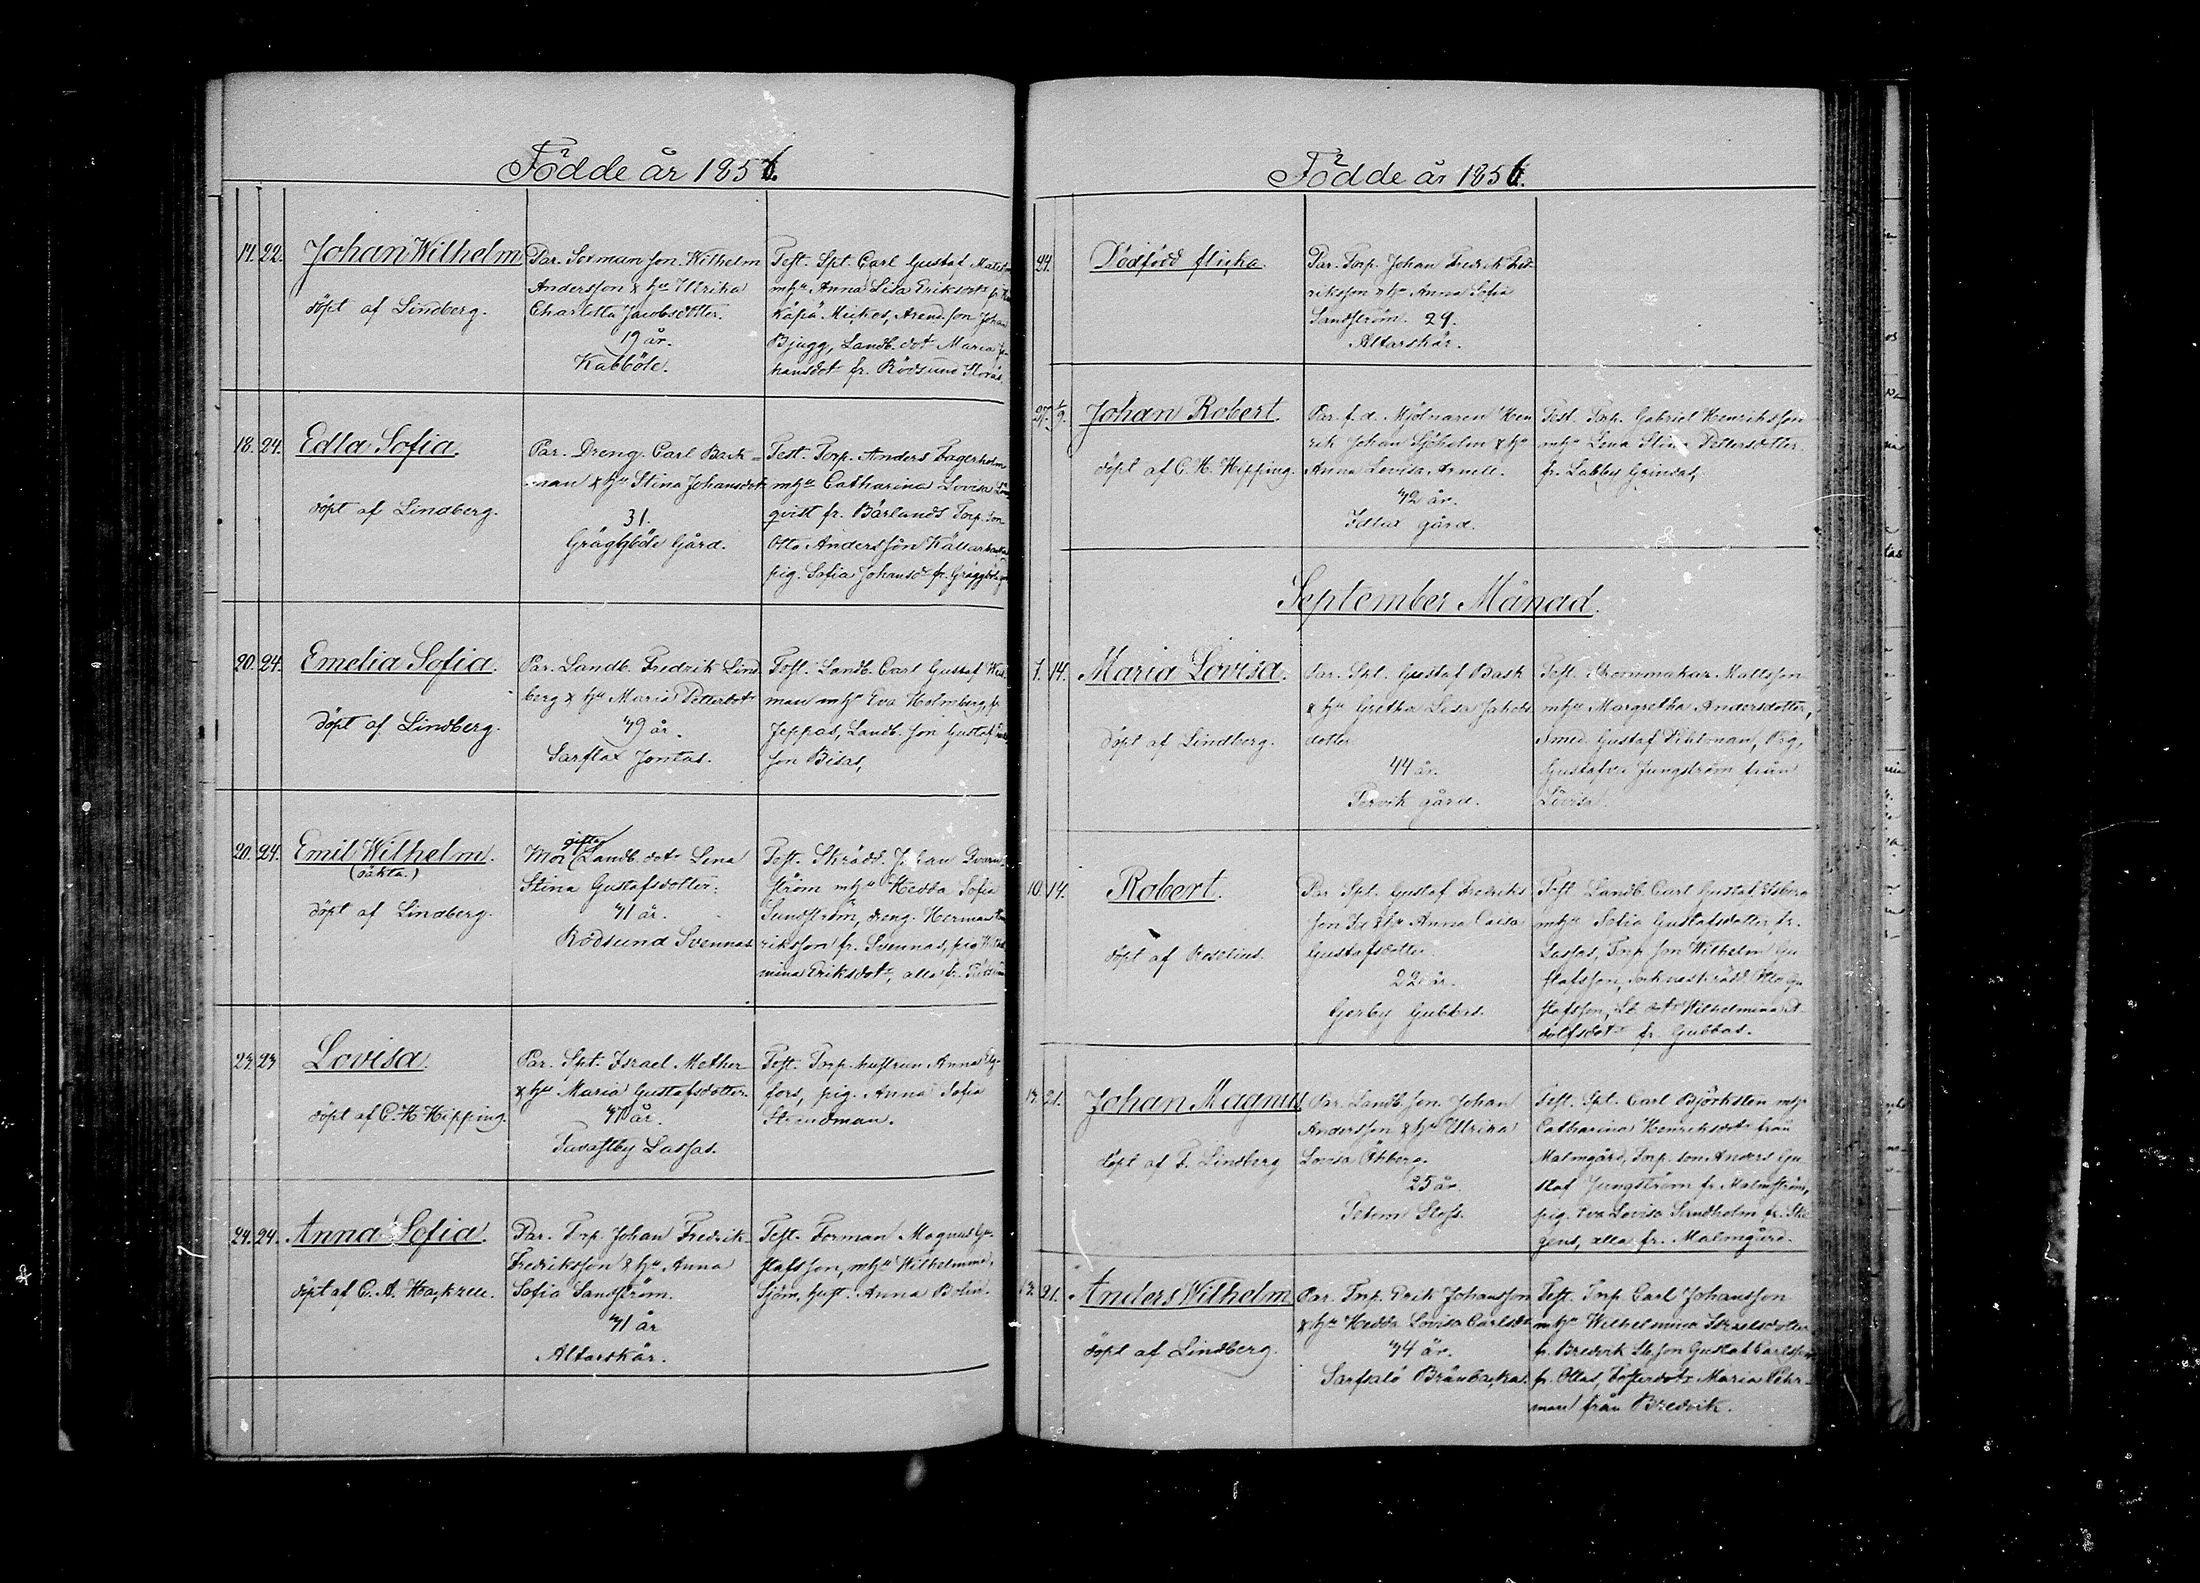 Födde år 1856.
14. 22. Johan Wilhelm
döpt af Lindberg.
Par. Soxman son. Wilhelm
Andersson & hu Ulrika
Charlotta Jacobsdotter.
19 år.
Kabböle.
Test. Spt. Carl Gustaf
mhu Anna Lisa Eriksdt
Käpä Mickos, Arend. son Johan
Bjugg, Landb. dot Maria Jo-
hansdot fr. Rödsund Storås.
18. 24. Edla Sofia.
döpt af Lindberg.
Par. Dreng. Carl Back-
man & hu Stina Johansdot
31.
Gråggböle Gård.
Test. Torp. Anders Fagerholm
mhu Catharina Lovisa
qvist fr. Bårlands Torp. son
Otto Andersson
pig. Sofia Johansd fr. Gråggböle
20. 24. Emelia Sofia.
döpt af Lindberg.
Par. Landb. Fredrik Lind
berg & hu Maria Petterdotr
39 år.
Sarflax Jontas.
Test. Landb. Carl Gustaf West
man mhu Eva Holmberg, fr.
Jeppas, Landb. son Gustaf
son Bisas,
20. 24. Emil Wilhelm.
(oäkta.)
döpt af Lindberg.
gifta
Mor Landb. dotr Lena
Stina Gustafsdotter.
41 år.
Rödsund Svennas
Test. Skrädd. Johan
ström mhu Hedda Sofia
Sundström, dreng. Herman
riksson fr. Svennas, pig
mina Eriksdotr, alla fr.
23. 23 Lovisa.
döpt af C. H. Hipping.
Par. Spt. Israel Mether
& hu Maria Gustafsdotter.
40 år.
Tavastby Lassas.
Test. Torp. hustrun Anna
fors, pig. Anna Sofia
Strandman.
24. 24. Anna Sofia.
döpt af C. A.
Par. Torp. Johan Fredrik
Fredriksson & hu Anna
Sofia Sandström.
Altarskär.
Test. Forman Magnus Gu-
stafsson, mhu Wilhelmina
hust. Anna Bolin.
Födde år 1856.
24. Dödfödd flicka.
Par. Torp. Johan Fredrik Fred-
riksson & hu Anna Sofia
Sandström. 29.
Altarskär.
27. 1/9. Johan Robert.
döpt af C. H. Hipping.
Par. f. d. Mjölnaren Hen
rik Johan Sjöholm & hu
Anna Lovisa
42 år.
gård.
Test. Torp. Gabriel Henriksson
mhu Lena Stina Pettersdotter
fr. Labby Grindas,
September Månad.
7. 14. Maria Lovisa.
döpt af Lindberg.
Par. Spt. Gustaf Bask
& hu Gretha Lisa Jakobs
dotter
44 år.
Tervik gård.
Test. Mattsson
mhu Margretha Andersdotter,
Smed. Gustaf Pig.
Gustafva Jungström från
Lovisa.
10. 14. Robert.
döpt af Roselius.
Par Spt. Gustaf Fredriks
son & hu Anna Caisa
Gustafsdotter
22 år.
Gerby Gubbas.
Test. Landb. Carl Gustaf
mhu Sofia Gustafsdotter fr.
Lassas, Torp. son Wilhelm Gu
stafsson, sockneskrädd. Otto Gu
stafsson, Lb. dotr Wilhelmina A
dolfsdotr fr. Gubbas.
13. 21. Johan Magnus
döpt af F. Lindberg
Par. Landb. son. Johan
Andersson & hu Ulrika
Lovisa Öhberg.
25 år.
Tetom Slofs.
Test. Spt. Carl Björksten mhu
Catharina Henriksdotr från
Malmgård, Torp. son Anders Gu
staf Jungström fr. Malmström,
pig. Eva Lovisa Sandholm fr.
alla fr. Malmgård.
13. 21. Anders Wilhelm
döpt af Lindberg.
Par. Torp. Erik Johansson
& hu Hedda Lovisa Carlsd
44 år.
Sarfsalö Bränbackas.
Test. Torp. Carl Johansson
mhu Wilhelmina Israelsdotter
fr. Bredvik Lb. son Gustaf Carlsson
fr. Ollas, Fosterdotr Maria
man från Bredvik.